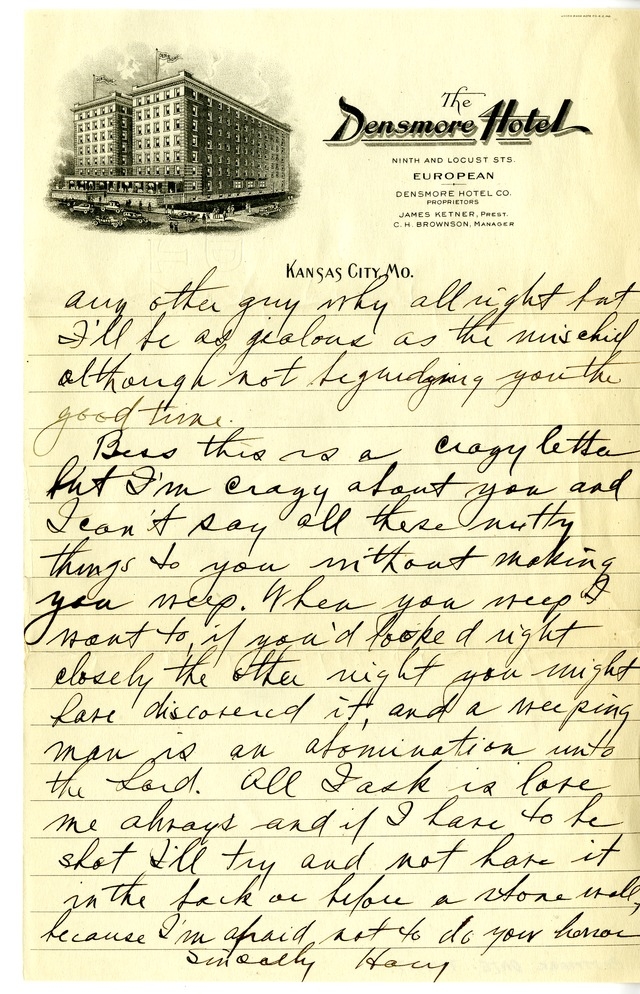 The
Densmore Hotel
NINTH AND LOCUST STS.
EUROPEAN
DENSMORE HOTEL CO.
PROPRIETORS
JAMES KETNER, PREST.
C. H. BROWNSON, MANAGER
KANSAS CITY, MO.
any other guy why all right but
I'll be as jealous as the mischief
although not begrudging you the
good time.
Bess this is a crazy letter
but I'm crazy about you and
I can't say all these nutty
things to you without making
you weep. When you weep I
want to, if you'd looked right
closely the other night you might
have discovered it, and a weeping
man is an abomination unto
the Lord. All I ask is love
me always and if I have to be
shot I'll try and not have it
in the back or before a stone wall,
because I'm afraid not to do you honor
Sincerely Harry